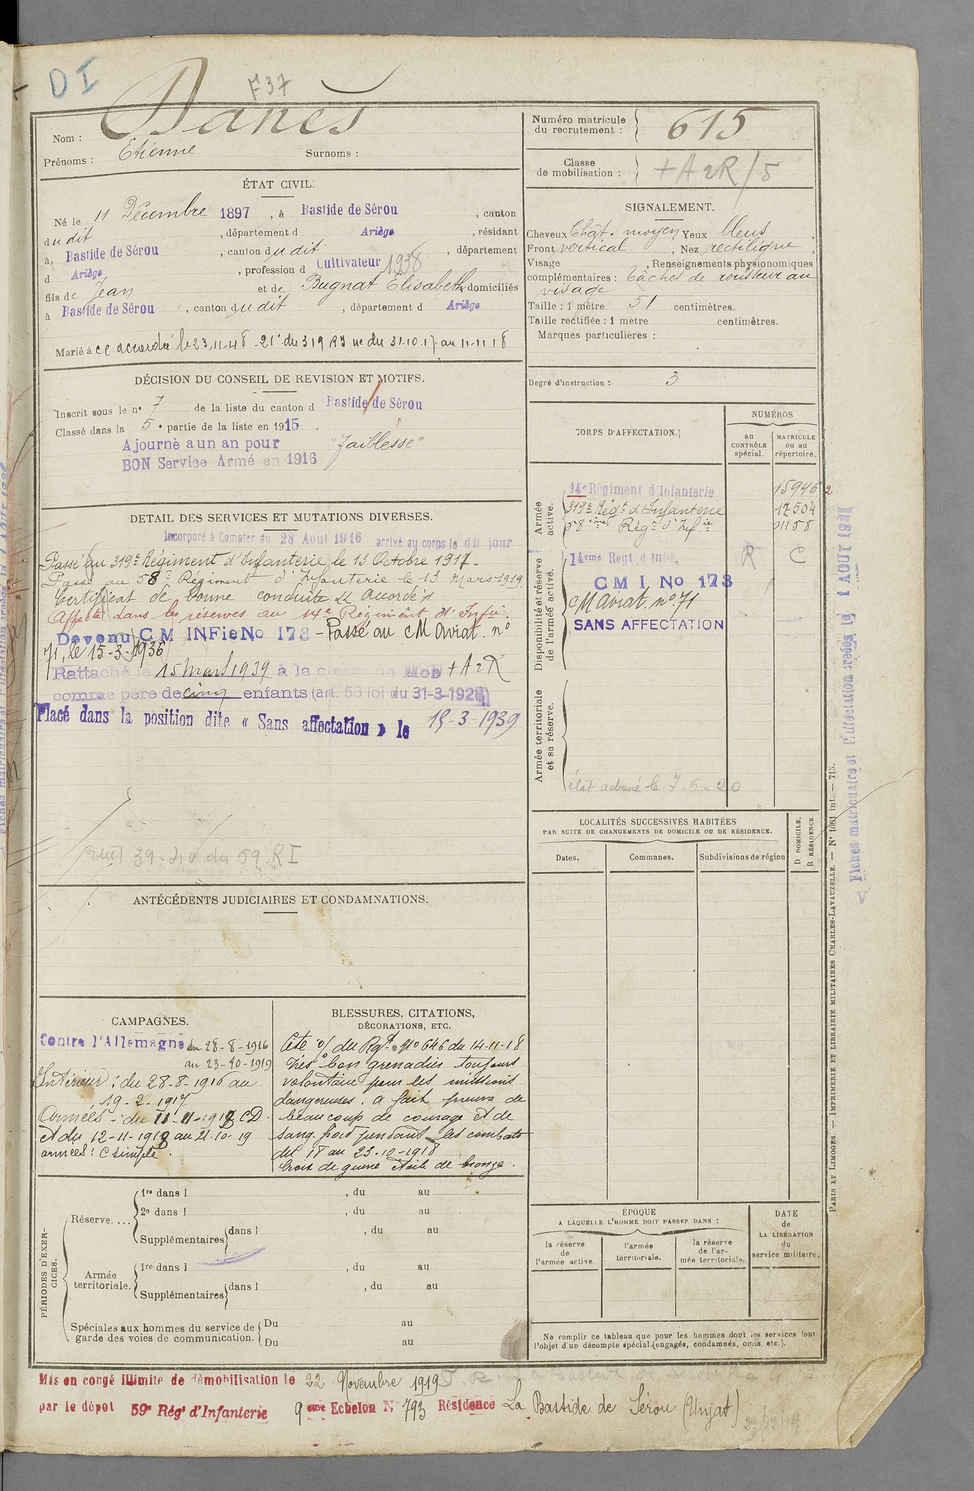 DI
F37
Nom : Danès
Prénoms : Etienne Surnoms :
Numéro matricule du recrutement : 615
Classe de mobilisation : + A 2R / 5
ÉTAT CIVIL.
Né le 11 Décembre 1897, à Bastide de Sérou, canton
dudit, département d Ariège, résidant
à Bastide de Sérou, canton dudit, département
d Ariège, profession d Cultivateur 1938
fils de Jean et de Bugnat Elisabeth domiciliés
à Bastide de Sérou, canton dudit, département d Ariège
Marié à
SIGNALEMENT.
Cheveux Chât. moyen Yeux bleus
Front vertical, Nez rectiligne
Visage , Renseignements physionomiques
complémentaires : tâches de rousseur au
visage
Taille : 1 mètre 51 centimètres.
Taille rectifiée : 1 mètre centimètres.
Marques particulières :
Degré d'instruction : 3
DÉCISION DU CONSEIL DE REVISION ET MOTIFS.
Inscrit sous le n° 7 de la liste du canton d Bastide de Sérou
Classé dans la 5e partie de la liste en 1915.
Ajourné a un an pour "faiblesse"
BON Service Armé en 1916
DETAIL DES SERVICES ET MUTATIONS DIVERSES.
Incorporé à Compter du 28 Aout 1916 arrivé au corps le dit jour
Passé au 319e Régiment d'Infanterie le 13 Octobre 1917.
Passé au 58e Régiment d'Infanterie le 13 Mars 1919
Certificat de bonne conduite "Accordé"
Affecté dans les réserves au 14e Régiment d'Infie.
Devenu CM INFie No 173 - Passé au CM Aviat. n°
71, le 15-3-1936
Rattaché le 15 Mars 1939 à la classe de MOB + A 2R
comme père de cinq enfants (art. 58 loi du 31-3-1928)
Placé dans la position dite « Sans affectation » le 15-3-1939
39-40 du 59 RI
CORPS D'AFFECTATION.
NUMÉROS
au CONTRÔLE spécial.
MATRICULE ou au répertoire.
Armée active.
14e Régiment d'Infanterie 15946
319e Régt d'Infanterie 17504
58ème Régt d'Infie 01158
Disponibilité et réserve de l'armée active.
14eme Regt d'Infie. R C
CMI. No 173
CM Aviat. n° 71
SANS AFFECTATION
Armée territoriale et sa réserve.
état adressé le 7-6-20
LOCALITÉS SUCCESSIVES HABITÉES
PAR SUITE DE CHANGEMENTS DE DOMICILE OU DE RÉSIDENCE.
Dates. Communes. Subdivisions de région
D DOMICILE. R RÉSIDENCE.
ANTÉCÉDENTS JUDICIAIRES ET CONDAMNATIONS.
CAMPAGNES.
Contre l'Allemagne du 28-8-1916
au 23-10-1919
Intérieur : du 28-8-1916 au
19-2-1917
Armées : au 11-11-1918 CD.
et du 12-11-1918 au 21-10-19
armées : C simple.
BLESSURES, CITATIONS,
DÉCORATIONS, ETC.
Cité o/ du Rgt. N° 646 du 14-11-18
Très bon grenadier toujours
volontaire pour les missions
dangereuses. a fait preuve de
beaucoup de courage et de
sang froid pendant les combats
du 18 au 23-10-1918
Croix de guerre étoile de bronze.
PÉRIODES D'EXERCICES.
Réserve....
1re dans l , du au
2e dans l , du au
Supplémentaires dans l , du au
Armée territoriale.
1re dans l , du au
Supplémentaires dans l , du au
Spéciales aux hommes du service de garde des voies de communication.
Du au
Du au
ÉPOQUE
A LAQUELLE L'HOMME DOIT PASSER DANS :
la réserve de l'armée active.
l'armée territoriale.
la réserve de l'armée territoriale.
DATE de LA LIBÉRATION du service militaire.
Ne remplir ce tableau que pour les hommes dont les services font
l'objet d'un décompte spécial (engagés, condamnés, omis, etc.).
Mis en congé illimité de démobilisation le 22 Novembre 1919
par le dépot 59e Rég' d'Infanterie 9eme Echelon No 793 Résidence La Bastide de Sérou (Unjat)
PARIS ET LIMOGES. — IMPRIMERIE ET LIBRAIRIE MILITAIRES CHARLES-LAVAUZELLE. — N° 1081 int. — 715.